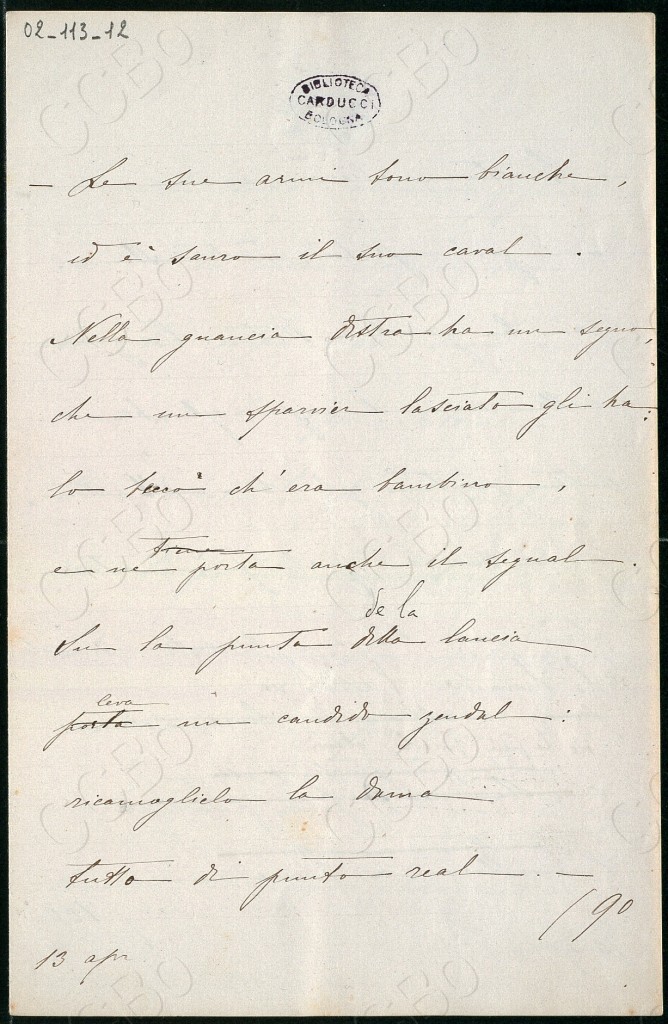 02-113-12
BIBLIOTECA
CARDUCCI
BOLOGNA
— Le sue armi sono bianche,
ed è sauro il suo caval.
Nella guancia destra ha un segno,
che un sparvier lasciato gli ha:
lo beccò ch'era bambino,
tiene
e ne porta anche il segnal.
de la
Su la punta della lancia
leva
porta un candido zendal:
ricamoglielo la dama
tutto di punto real. —
13 apr
90